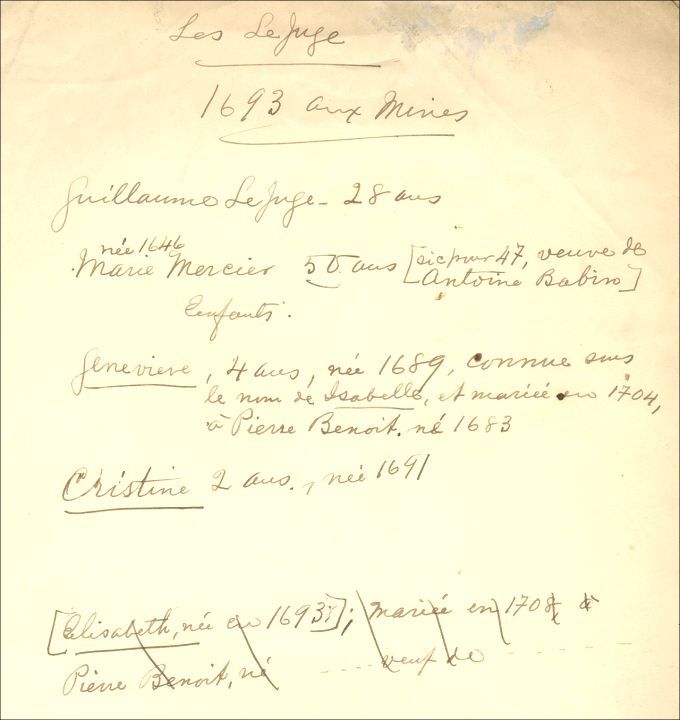 Les LeJuge
1693 aux Mines
Guillaume LeJuge - 28 ans
née 1646
Marie Mercier 50 ans [sic pour 47, veuve de
Antoine Babin]
Enfants.
Geneviève, 4 ans, née 1689, connue sous
le nom de Isabelle, et mariée en 1704,
à Pierre Benoit, né 1683
Cristine 2 ans., née 1691
[Elisabeth, née en 1693?]; mariée en 1708 à
Pierre Benoit, né .... veuf de ......